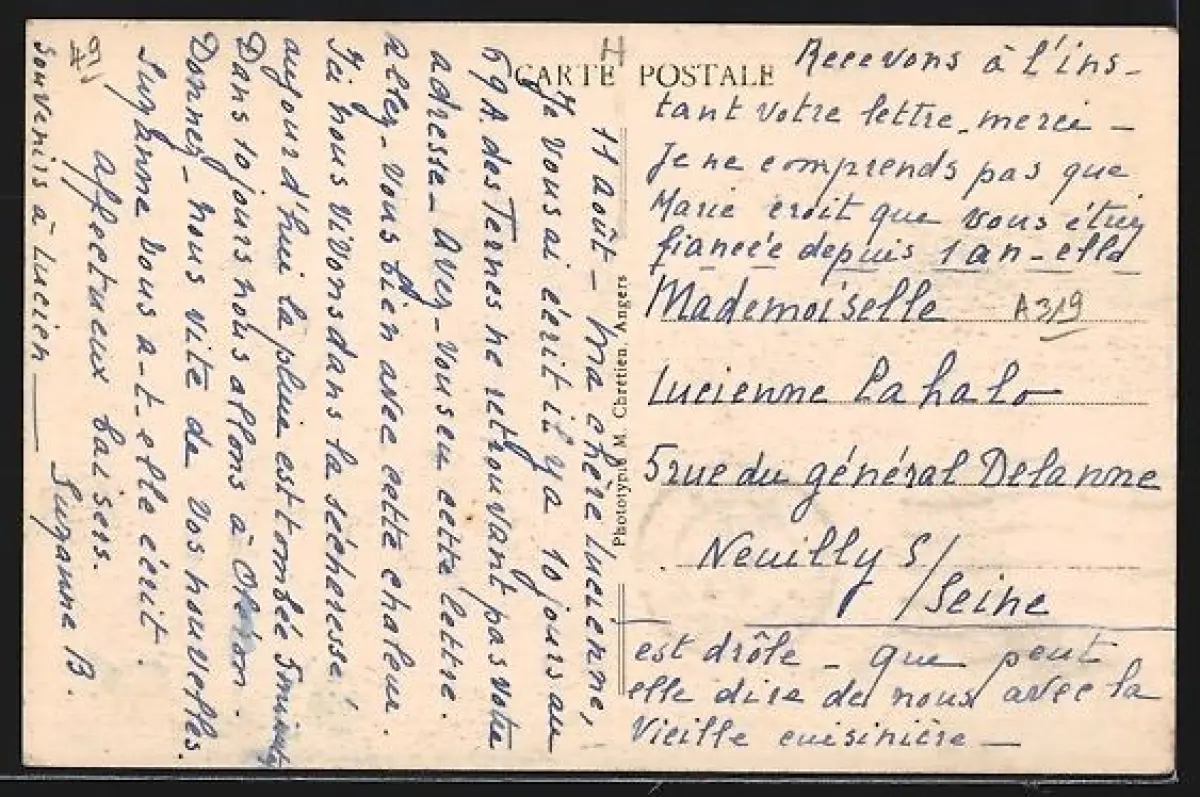 CARTE POSTALE
11 août - Ma chère Lucienne,
Je vous ai écrit il y a 10 jours au
69 A des Ternes ne retrouvant pas votre
adresse - Avez-vous eu cette lettre.
Allez-vous bien avec cette chaleur
Ici nous vivons dans la sécheresse!
aujourd'hui la pluie est tombée 5 minutes
Dans 10 jours nous allons à Oléron.
Donnez-nous vite de vos nouvelles.
Suzanne vous a-t-elle écrit.
affectueux baisers.
Suzanne B.
Souvenirs à Lucien
49
Phototypie M. Chrétien, Angers
Recevons à l'ins-
tant votre lettre, merci -
Je ne comprends pas que
Marie croit que vous étiez
fiancée depuis 1 an - elle
Mademoiselle A319
Lucienne Lahalo
5 rue du général Delanne
Neuilly S/
Seine
est drôle - que peut
elle dire de nous avec la
vieille cuisinière -